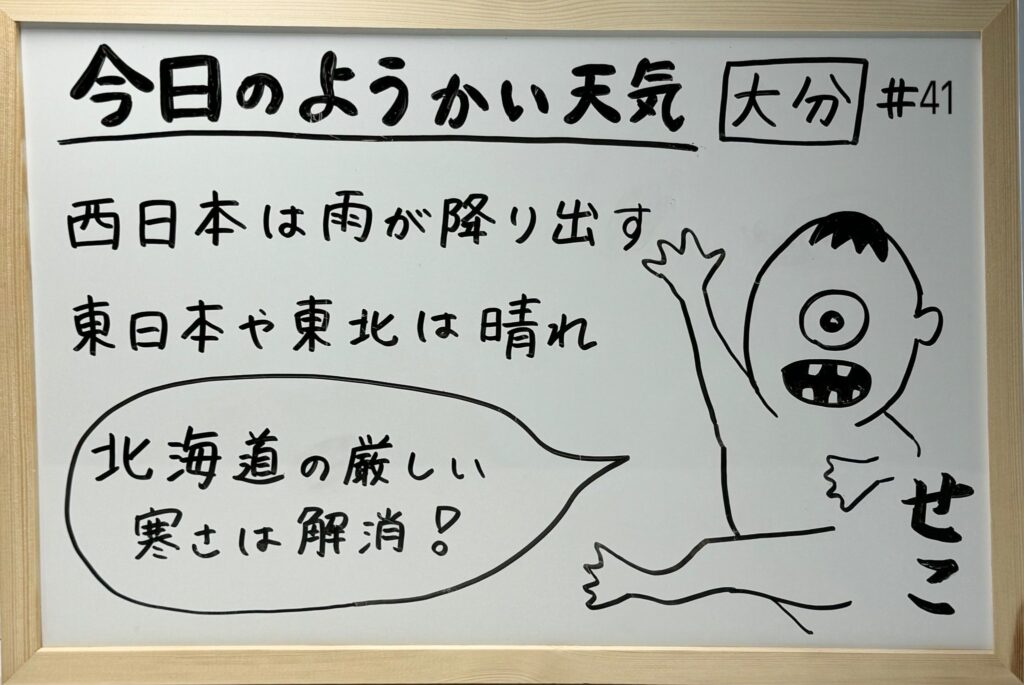 今日のようかい天気 大分 #41
西日本は雨が降り出す
東日本や東北は晴れ
北海道の厳しい
寒さは解消!
せこ